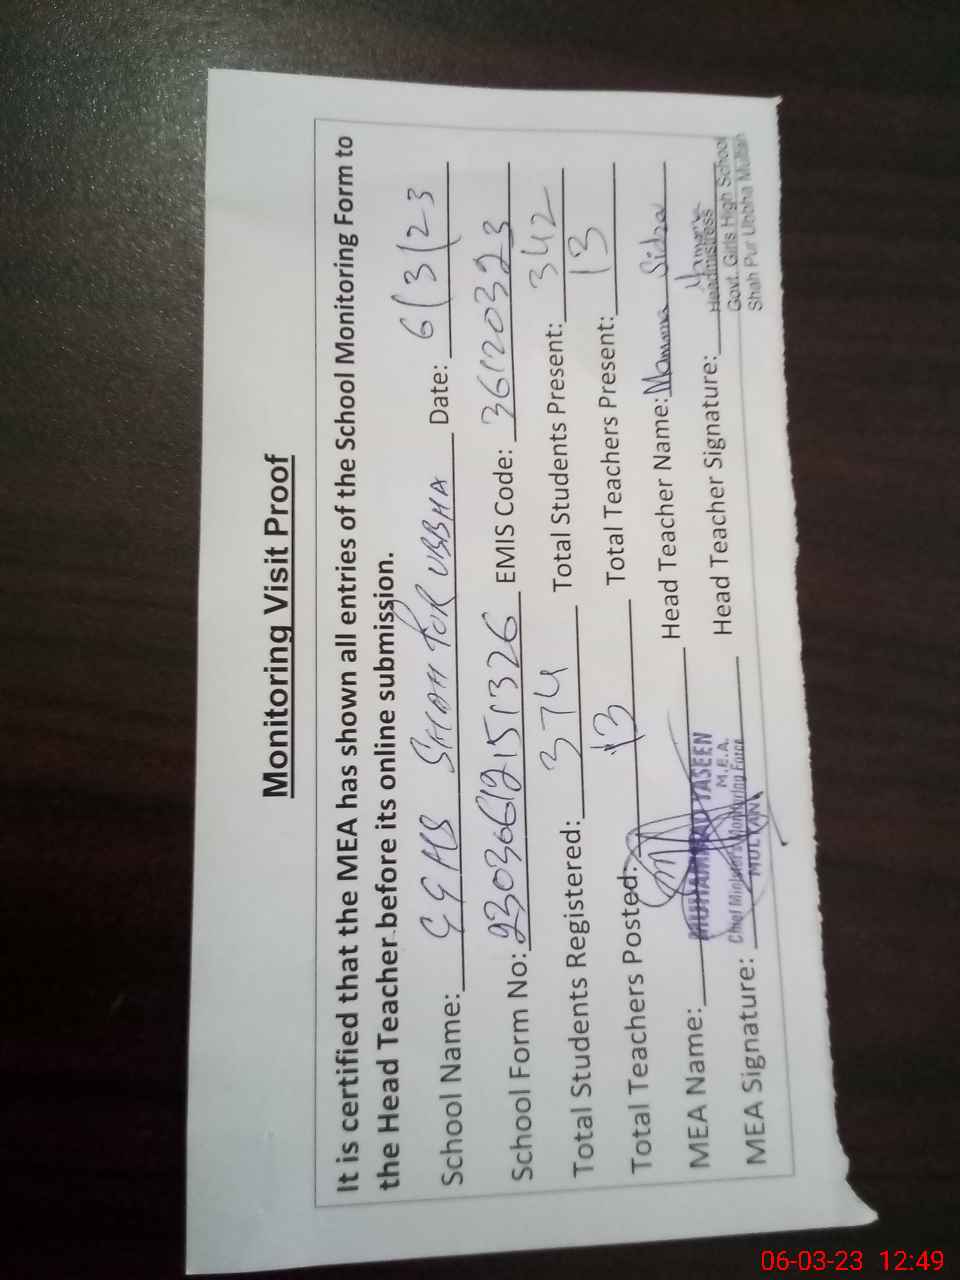 Monitoring Visit Proof
It is certified that the MEA has shown all entries of the School Monitoring Form to
the Head Teacher before its online submission.
School Name: GGHS SHAH PUR UBBHA Date: 6/3/23
School Form No: EMIS Code: 36120323
Total Students Registered: 374 Total Students Present: 342
Total Teachers Posted: 13 Total Teachers Present: 13
MEA Name: MUHAMMAD YASEEN Head Teacher Name: Sidra
M.E.A.
Chief Minister's Monitoring Force
MULTAN
MEA Signature: Head Teacher Signature:
Headmistress
Govt. Girls High School
Shah Pur Ubbha Multan
06-03-23 12:49